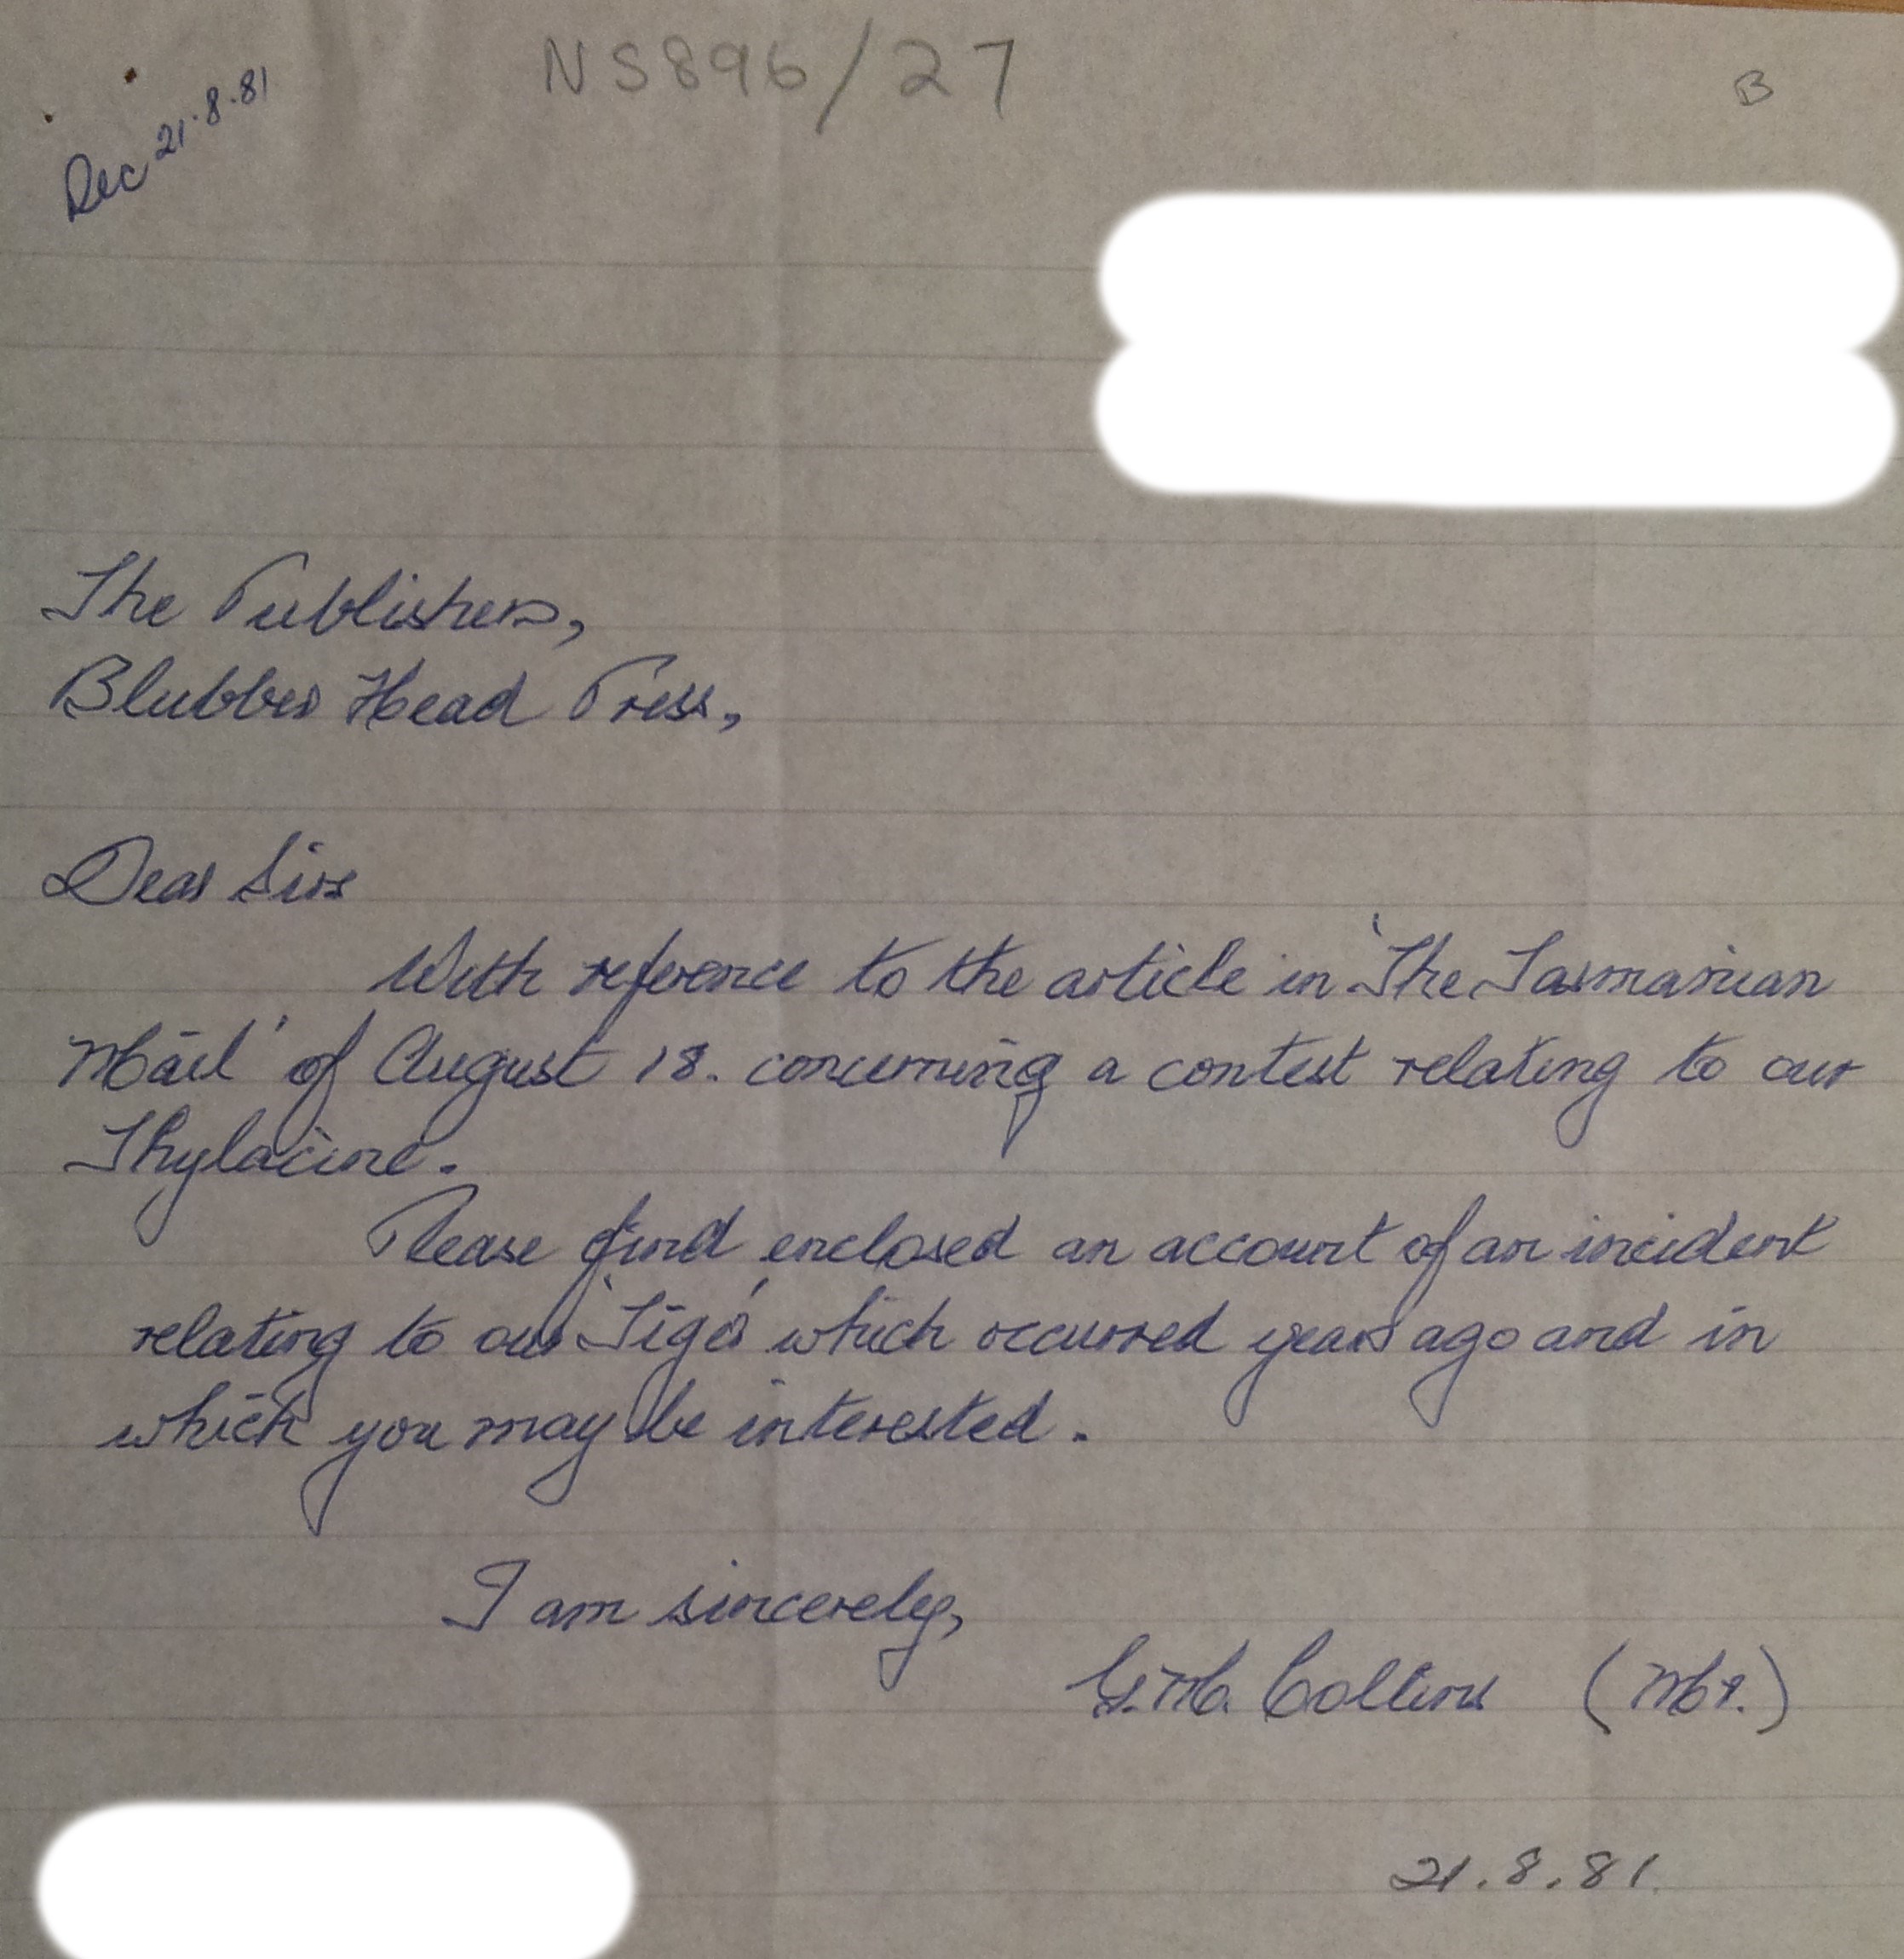 NS896/27
B
Rec 21.8.81
The Publishers,
Blubber Head Press,
Dear Sirs
With reference to the article in 'The Tasmanian
Mail' of August 18. concerning a contest relating to our
Thylacine.
Please find enclosed an account of an incident
relating to our 'Tiger' which occurred years ago and in
which you may be interested.
I am sincerely,
G.M. Collins (Mr.)
21.8.81.